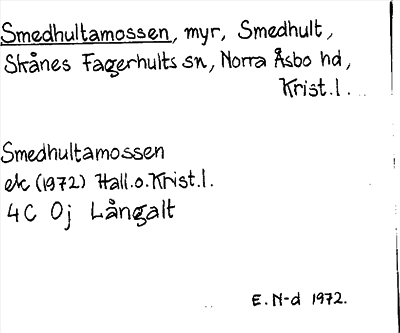 Smedhultamossen, myr, Smedhult,
Skånes Fagerhults sn, Norra Åsbo hd,
Krist.l.
Smedhultamossen
ek (1972) Hall.o.Krist.l.
4C 0j Långalt
E. N-d 1972.